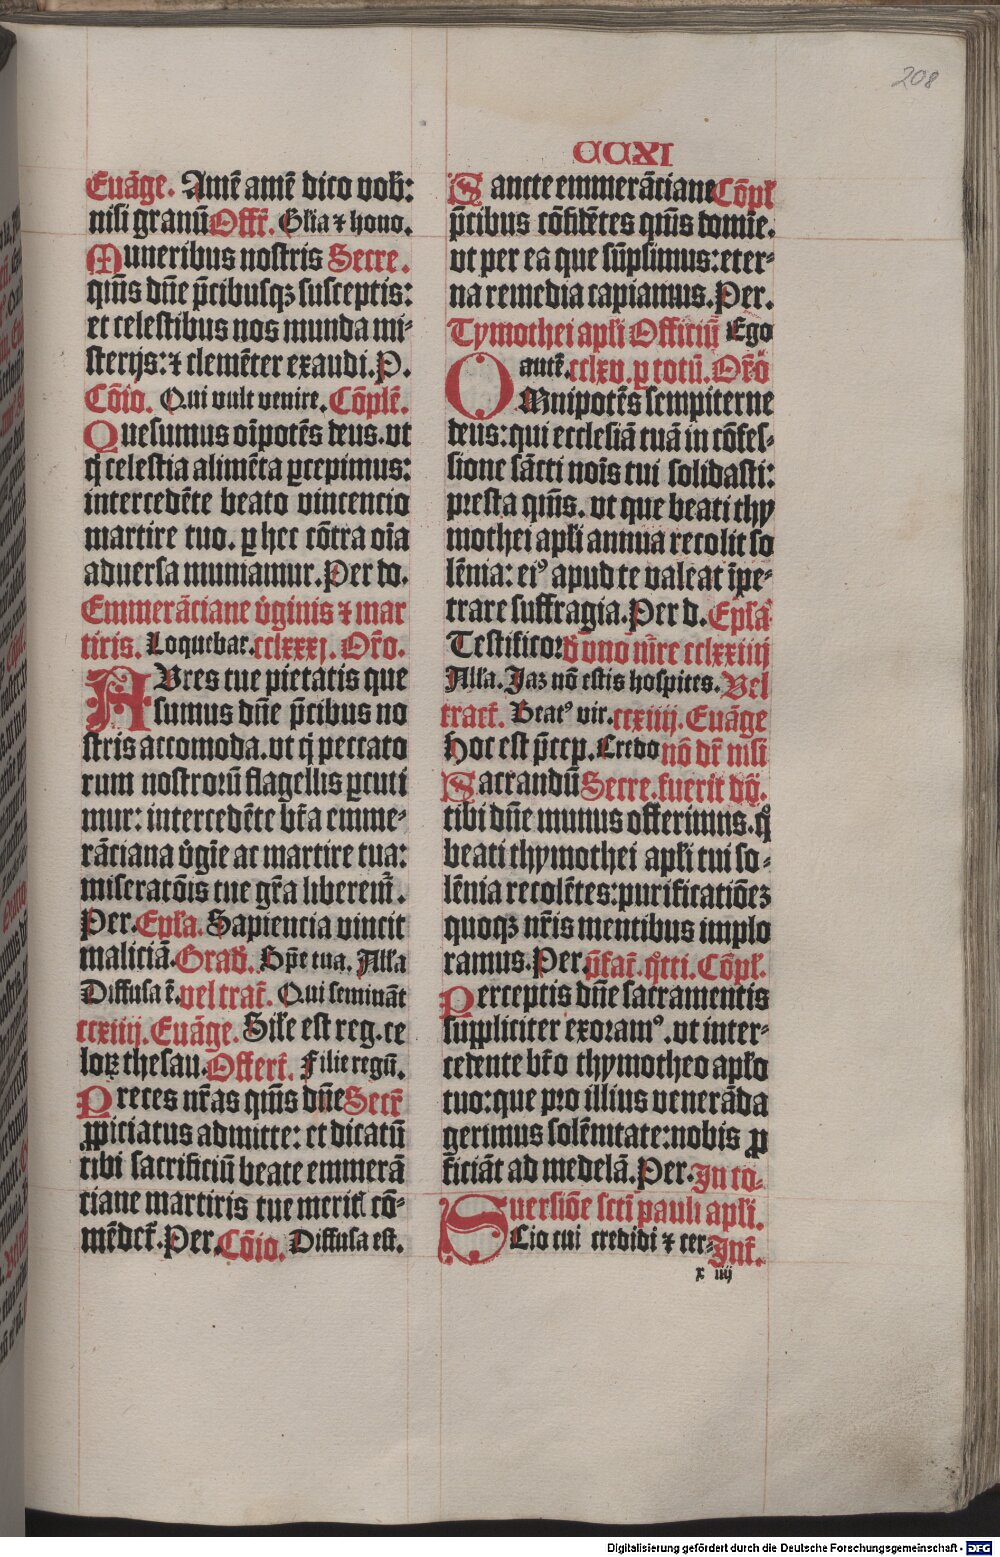 208
CCXI
Euāge. Amē amē dico vob̄:
nisi granū Offr̄. Gl̄ia ⁊ hono.
Muneribus nostris Secre.
qm̄s dn̄e p̄cibusqꝫ susceptis:
et celestibus nos munda mi-
sterijs: ⁊ clemēter exaudi. P.
Cōio. Qui vult venire. Cōplē.
Quesumus oīpotēs deus. vt
q̄ celestia alimēta ꝑcepimus:
intercedēte beato vincencio
martire tuo. ꝑ hec cōtra oīa
aduersa muniamur. Per do.
Emmerāciane v̄ginis ⁊ mar
tiris. Loquebar. cclxxxj. Or̄o.
AVres tue pietatis que
sumus dn̄e p̄cibus no
stris accomoda. vt q̄ peccato
rum nostrorū flagellis ꝑcuti
mur: intercedēte bt̄a emme-
rāciana v̄gīe ac martire tua:
miseratōis tue gr̄a liberem̄.
Per. Ep̄la. Sapiencia vincit
maliciā. Grad̄. Sp̄e tua. All̄a
Diffusa ē. vel tract̄. Qui semināt
ccxiiij. Euāge. Sil̄e est reg. ce
loꝝ thesau. Offert̄. Filie regū.
Preces nr̄as qm̄s dn̄e Secr̄
ꝓpiciatus admitte: et dicatū
tibi sacrificiū beate emmerā
ciane martiris tue merit̄ cō-
mēdet̄. Per. Cōio. Diffusa est.
Sancte emmerāciane Cōpl̄
p̄cibus cōfidētes qm̄s domīe.
vt per ea que sūpsimus: eter-
na remedia capiamus. Per.
Tymothei apl̄i Officiū Ego
autē. cclxv. ꝑ totū. Or̄o
OMnipotēs sempiterne
deus: qui ecclesiā tuā in cōfes-
sione sācti noīs tui solidasti:
presta qm̄s. vt que beati thy
mothei apl̄i annua recolit so
lēnia: eiꝰ apud te valeat īpe-
trare suffragia. Per d. Ep̄la
Testificor d̄ vno m̄re cclxxiiij
All̄a. Jaꝫ nō estis hospites. Vel
tract̄. Beatꝰ vir. ccxiiij. Euāge
Hoc est p̄cep. Credo nō dr̄ nisi
Sacrandū Secre. fuerit dn̄̄.
tibi dn̄e munus offerimus. q̄
beati thymothei apl̄i tui so-
lēnia recolētes: purificatiōeꝫ
quoqꝫ nr̄is mentibus implo
ramus. Per. p̄fat̄. q̄tti. Cōpl̄.
Perceptis dn̄e sacramentis
suppliciter exoramꝰ. vt inter-
cedente bt̄o thymotheo apl̄o
tuo: que pro illius venerāda
gerimus solēnitate: nobis ꝓ
ficiāt ad medelā. Per. In co-
uersiōe scti pauli apl̄i.
SCio cui credidi ⁊ cer- Int̄.
x iiij
Digitalisierung gefördert durch die Deutsche Forschungsgemeinschaft - DFG